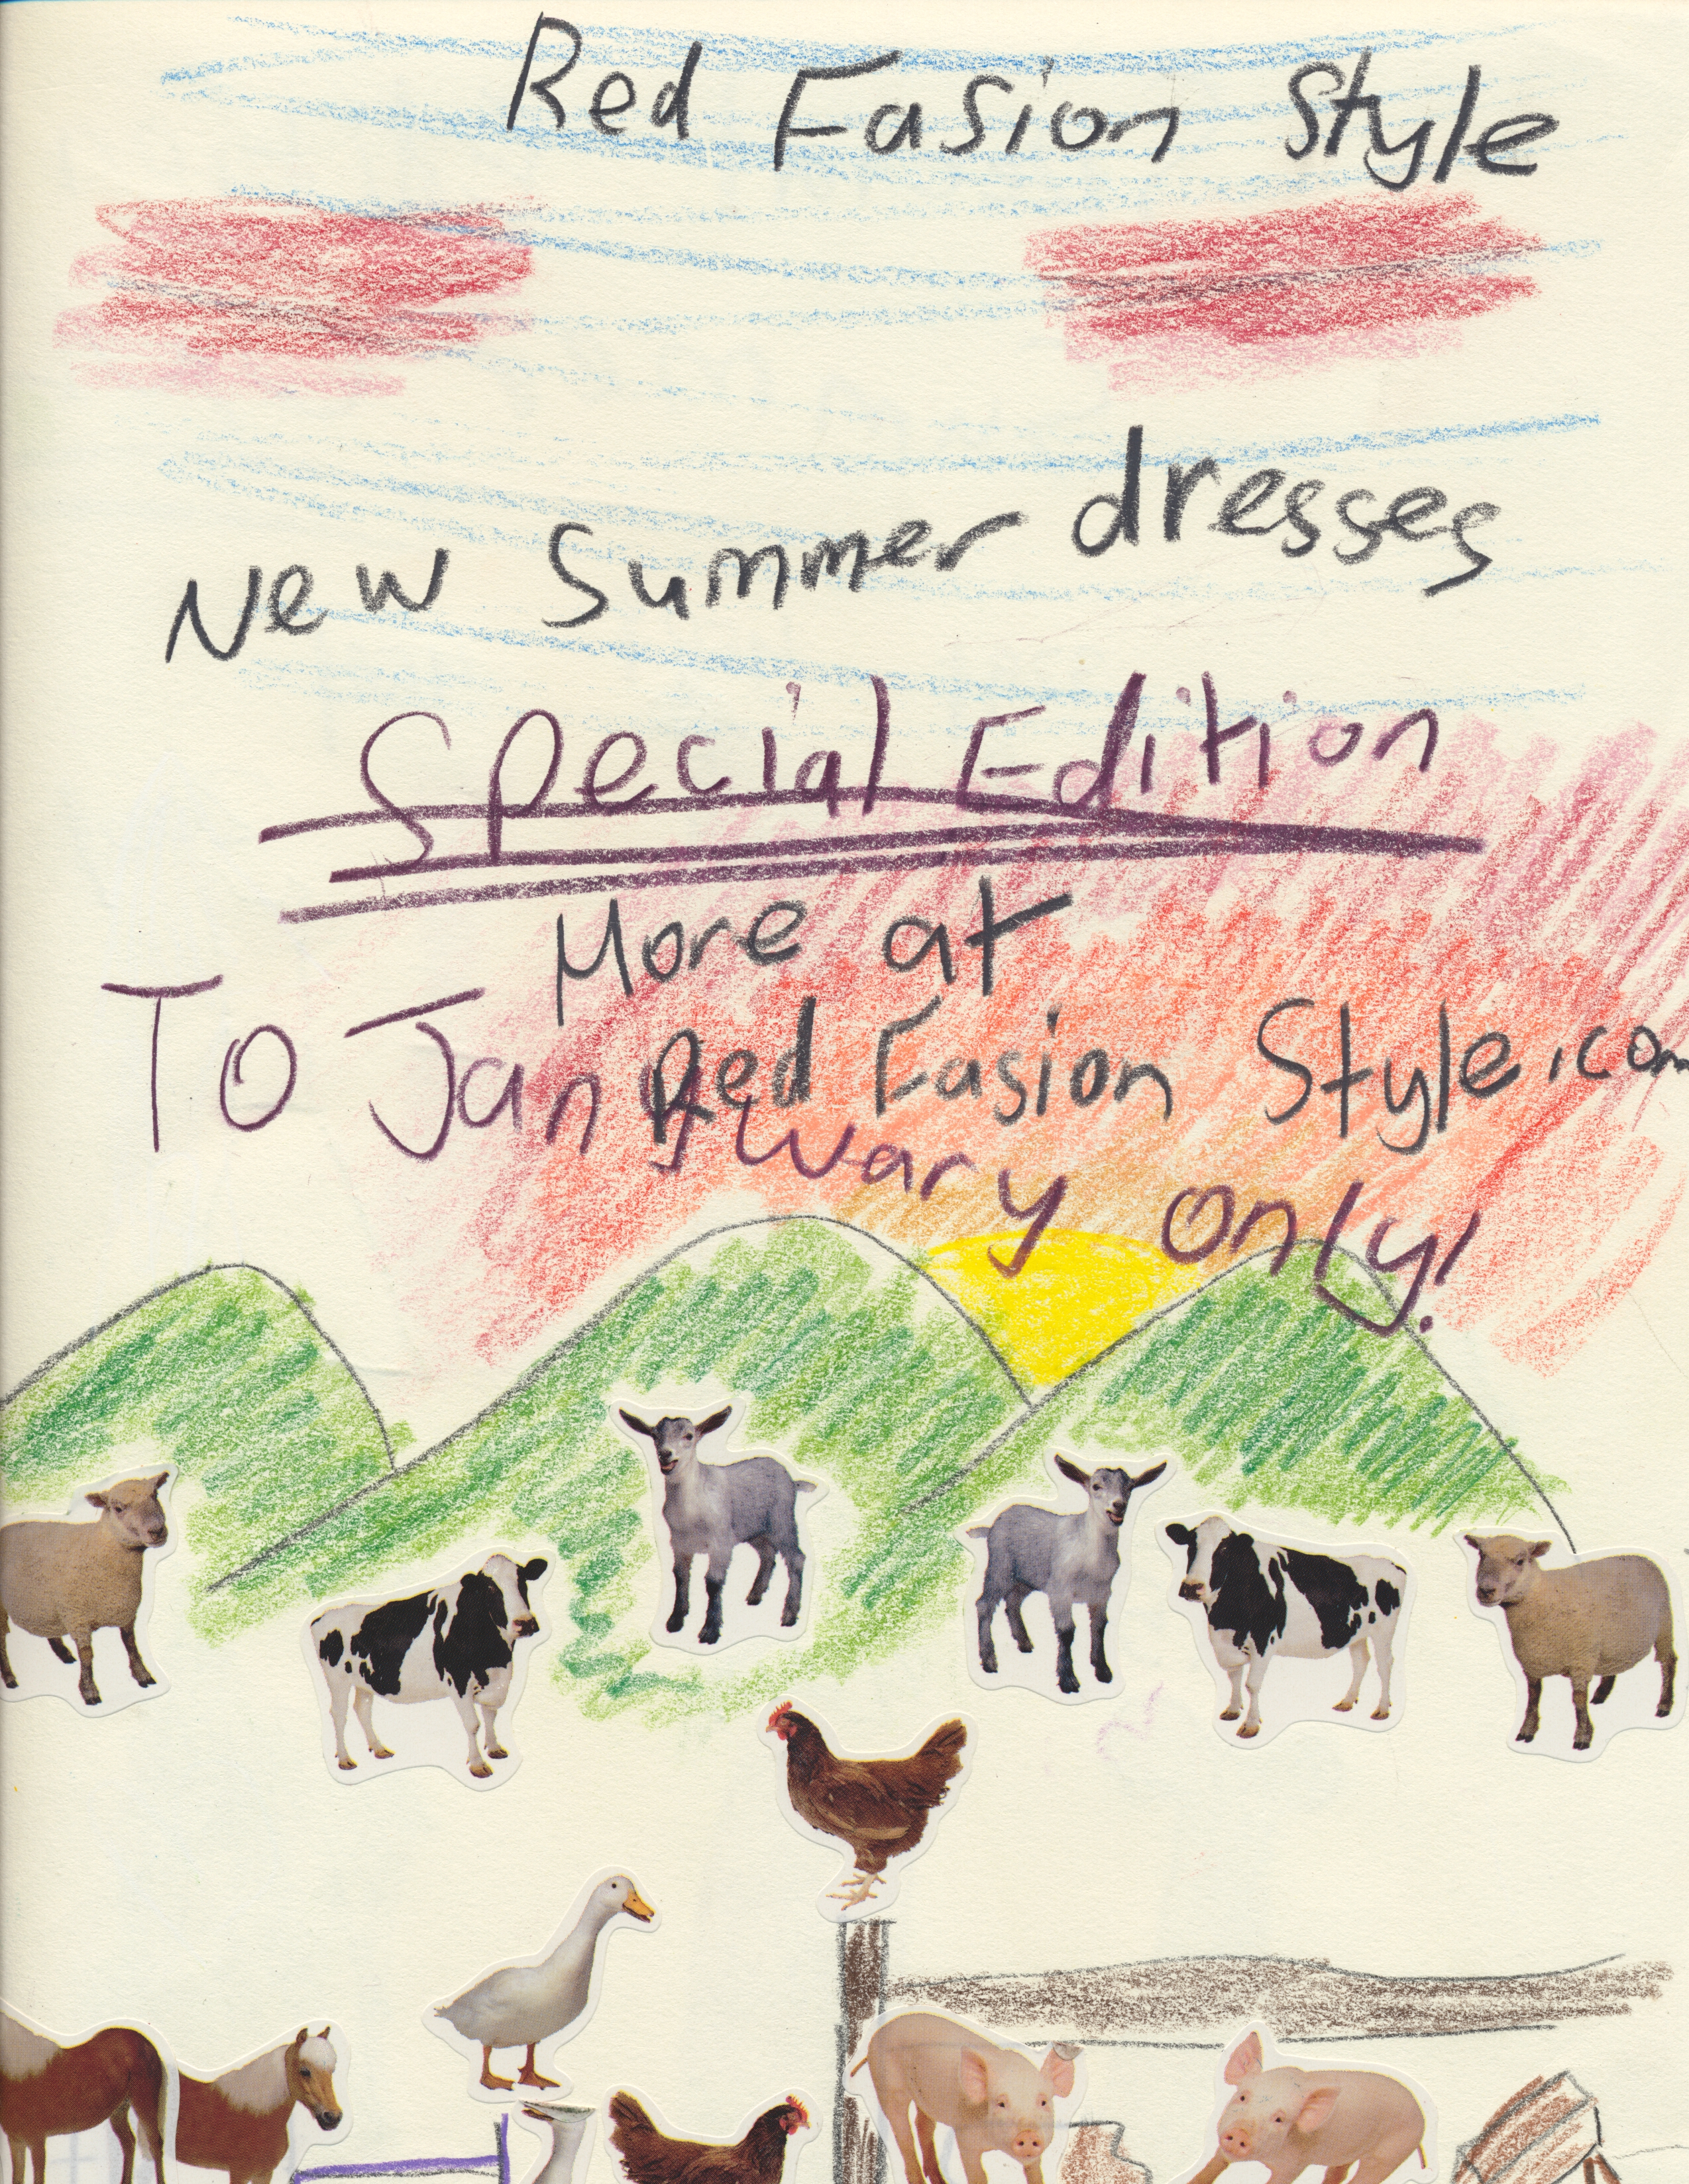 Red Fasion Style
New Summer dresses
Special Edition
More at
Red Fasion Style.com
To Janywary only!